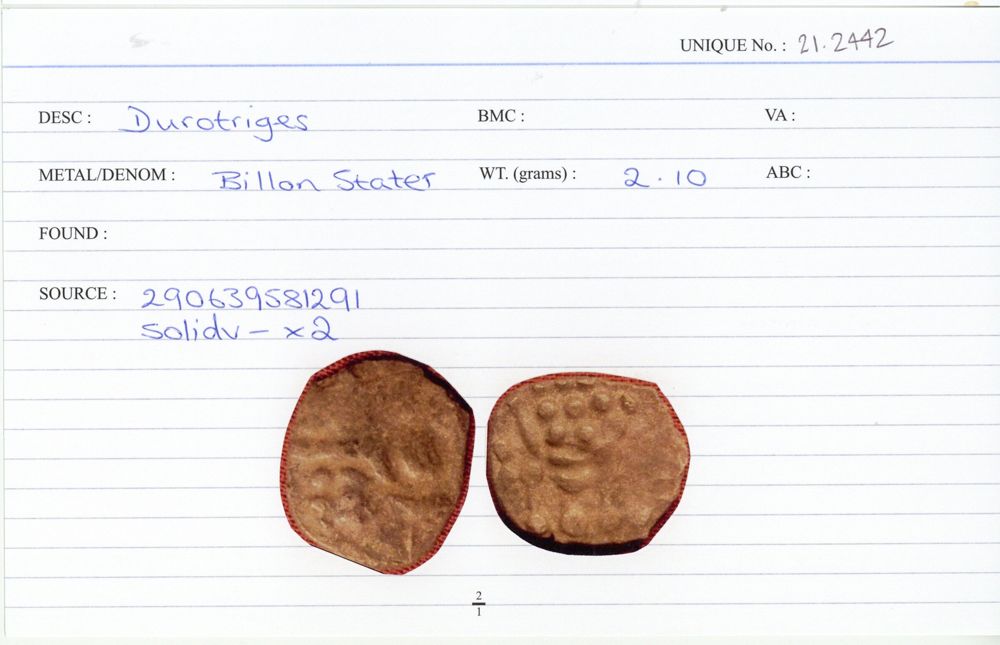 UNIQUE No. : 21.2442
DESC : Durotriges BMC : VA :
METAL/DENOM : Billon Stater WT. (grams) : 2.10 ABC :
FOUND :
SOURCE : 290639581291
solidv - x2
2
1